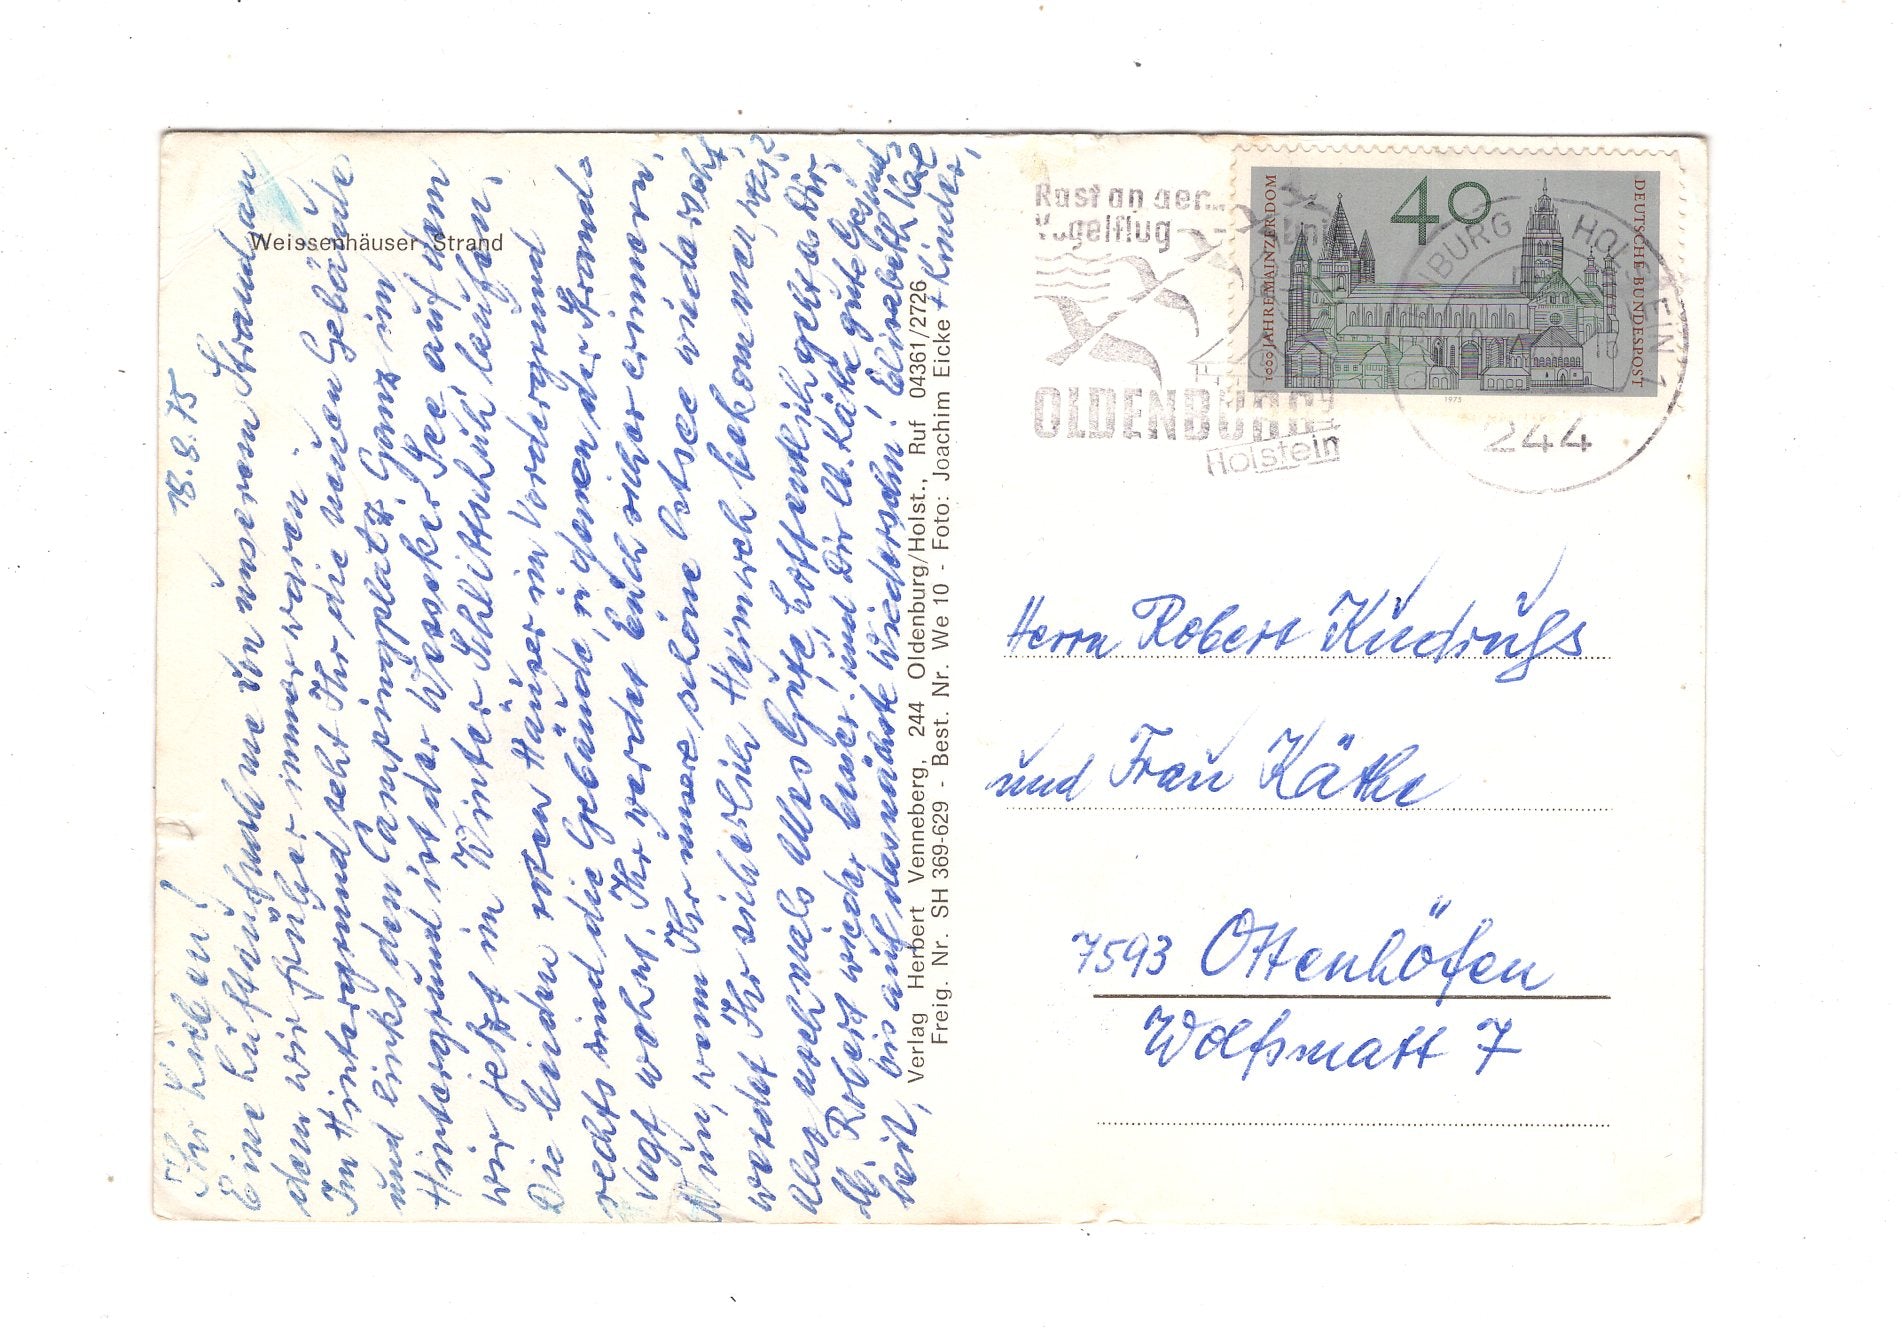 Weissenhäuser Strand
18.8.75
Ihr Lieben!
Eine Luftaufnahme von unserem Strand, an
dem wir früher immer waren.
Im Hintergrund seht Ihr die neuen Gebäude
und links den Campingplatz. Ganz im
Hintergrund ist der Wesseker See auf dem
wir jetzt im Winter Schlittschuh laufen.
Die beiden Häuser im Vordergrund
rechts sind die Gebäude, in denen der Strand-
vogt wohnt. Ihr werdet Euch sicher erinnern.
Nun, wenn Ihr unsere schöne Ostsee wiederseht,
werdet Ihr sicherlich Heimweh bekommen, was?
Also nochmals alles Gute, hoffentlich geht es Dir,
lb. Robert wieder besser! und Dir lb. Käthe gute Gesund-
heit, bis auf das nächste Wiedersehn! Elisabeth, Karl
+ Kinder,
Verlag Herbert Venneberg, 244 Oldenburg/Holst., Ruf 04361/2726
Freig. Nr. SH 369-629 - Best. Nr. We 10 - Foto: Joachim Eicke
Rast an der...
Vogelfluglinie
OLDENBURG
Holstein
OLDENBURG HOLSTEIN 1
244
1000 JAHRE MAINZER DOM
40
DEUTSCHE BUNDESPOST
1975
Herrn Robert
und Frau Käthe
7593 Ottenhöfen
Wolfsmatt 7